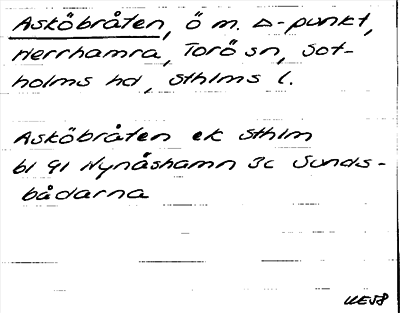 Asköbråten, ö m. Δ-punkt,
Herrhamra, Torö sn, Sot-
holms hd, Sthlms l.
Asköbråten ek Sthlm
bl 91 Nynäshamn 3c Sunds-
bådarna